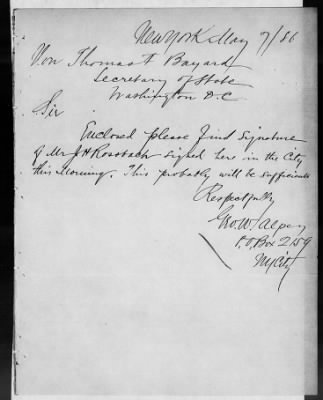 New York May 7/86
Hon Thomas F Bayard
Secretary of State
Washington D.C
Sir
Enclosed please find signature
of Mr J H Rossbach signed here in the City
this morning. This probably will be sufficient
Respectfully
Geo. W.
P.O. Box 2159
NYCity